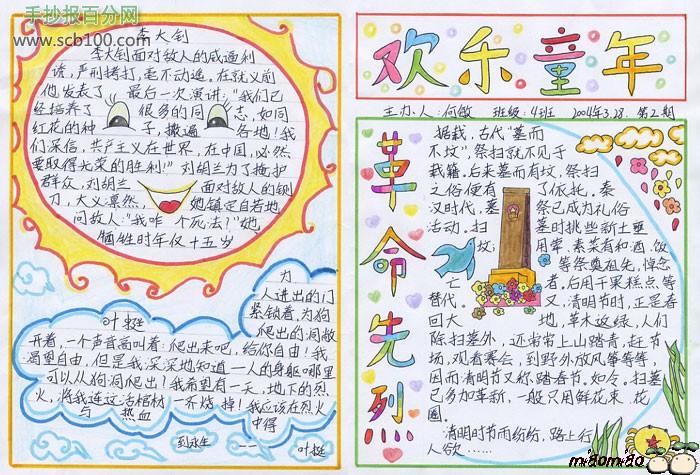 手抄报百分网
www.scb100.com
李大钊
李大钊面对敌人的威逼利
诱，严刑拷打，毫不动遥，在就义前
他发表了 最后一次演讲："我们已
经培养了 很多的同志，如同
红花的种子，撒遍 各地！我
们深信，共产主义在世界，在中国，必然
要取得光荣的胜利！"刘胡兰为了掩护
群众，刘胡兰 面对敌人的铡
刀，大义凛然， 她镇定自若地
问敌人："我咋个死法？"她
牺牲时年仅十五岁
叶挺
为
人进出的门
紧锁着，为狗
爬出的洞敞
开着，一个声音高叫着：爬出来吧，给你自由！我
渴望自由，但是我深深地知道一人的身躯哪里
可以从狗洞爬出？我希望有一天，地下的烈
火，将我连这活棺材一齐烧掉！我应该在烈火
与 热血 中得
到永生 —— 叶挺
欢乐童年
主办人：何敏 班级：4班 2004年3.28. 第2期
革命先烈
据载，古代"墓而
不坟"，祭扫就不见于
载籍。后来墓而有坟，祭扫
之俗便有了依托。秦
汉时代，墓祭已成为礼俗
活动。扫墓时挑些新土垂
坟； 用荤、素菜有和酒、饭
等祭奠祖先，悼念
亡者；后用干果糕点等
替代。又清明节时，正是春
回大地，草木返绿，人们
除扫墓外，还常常上山踏青、赶节
场，观看赛会，到野外放风筝等等，
因而清明节又称踏春节。如今。扫墓
已多加革新，一般只用鲜花束、花
圈。
清明时节雨纷纷，路上行
人欲……
miaomiao